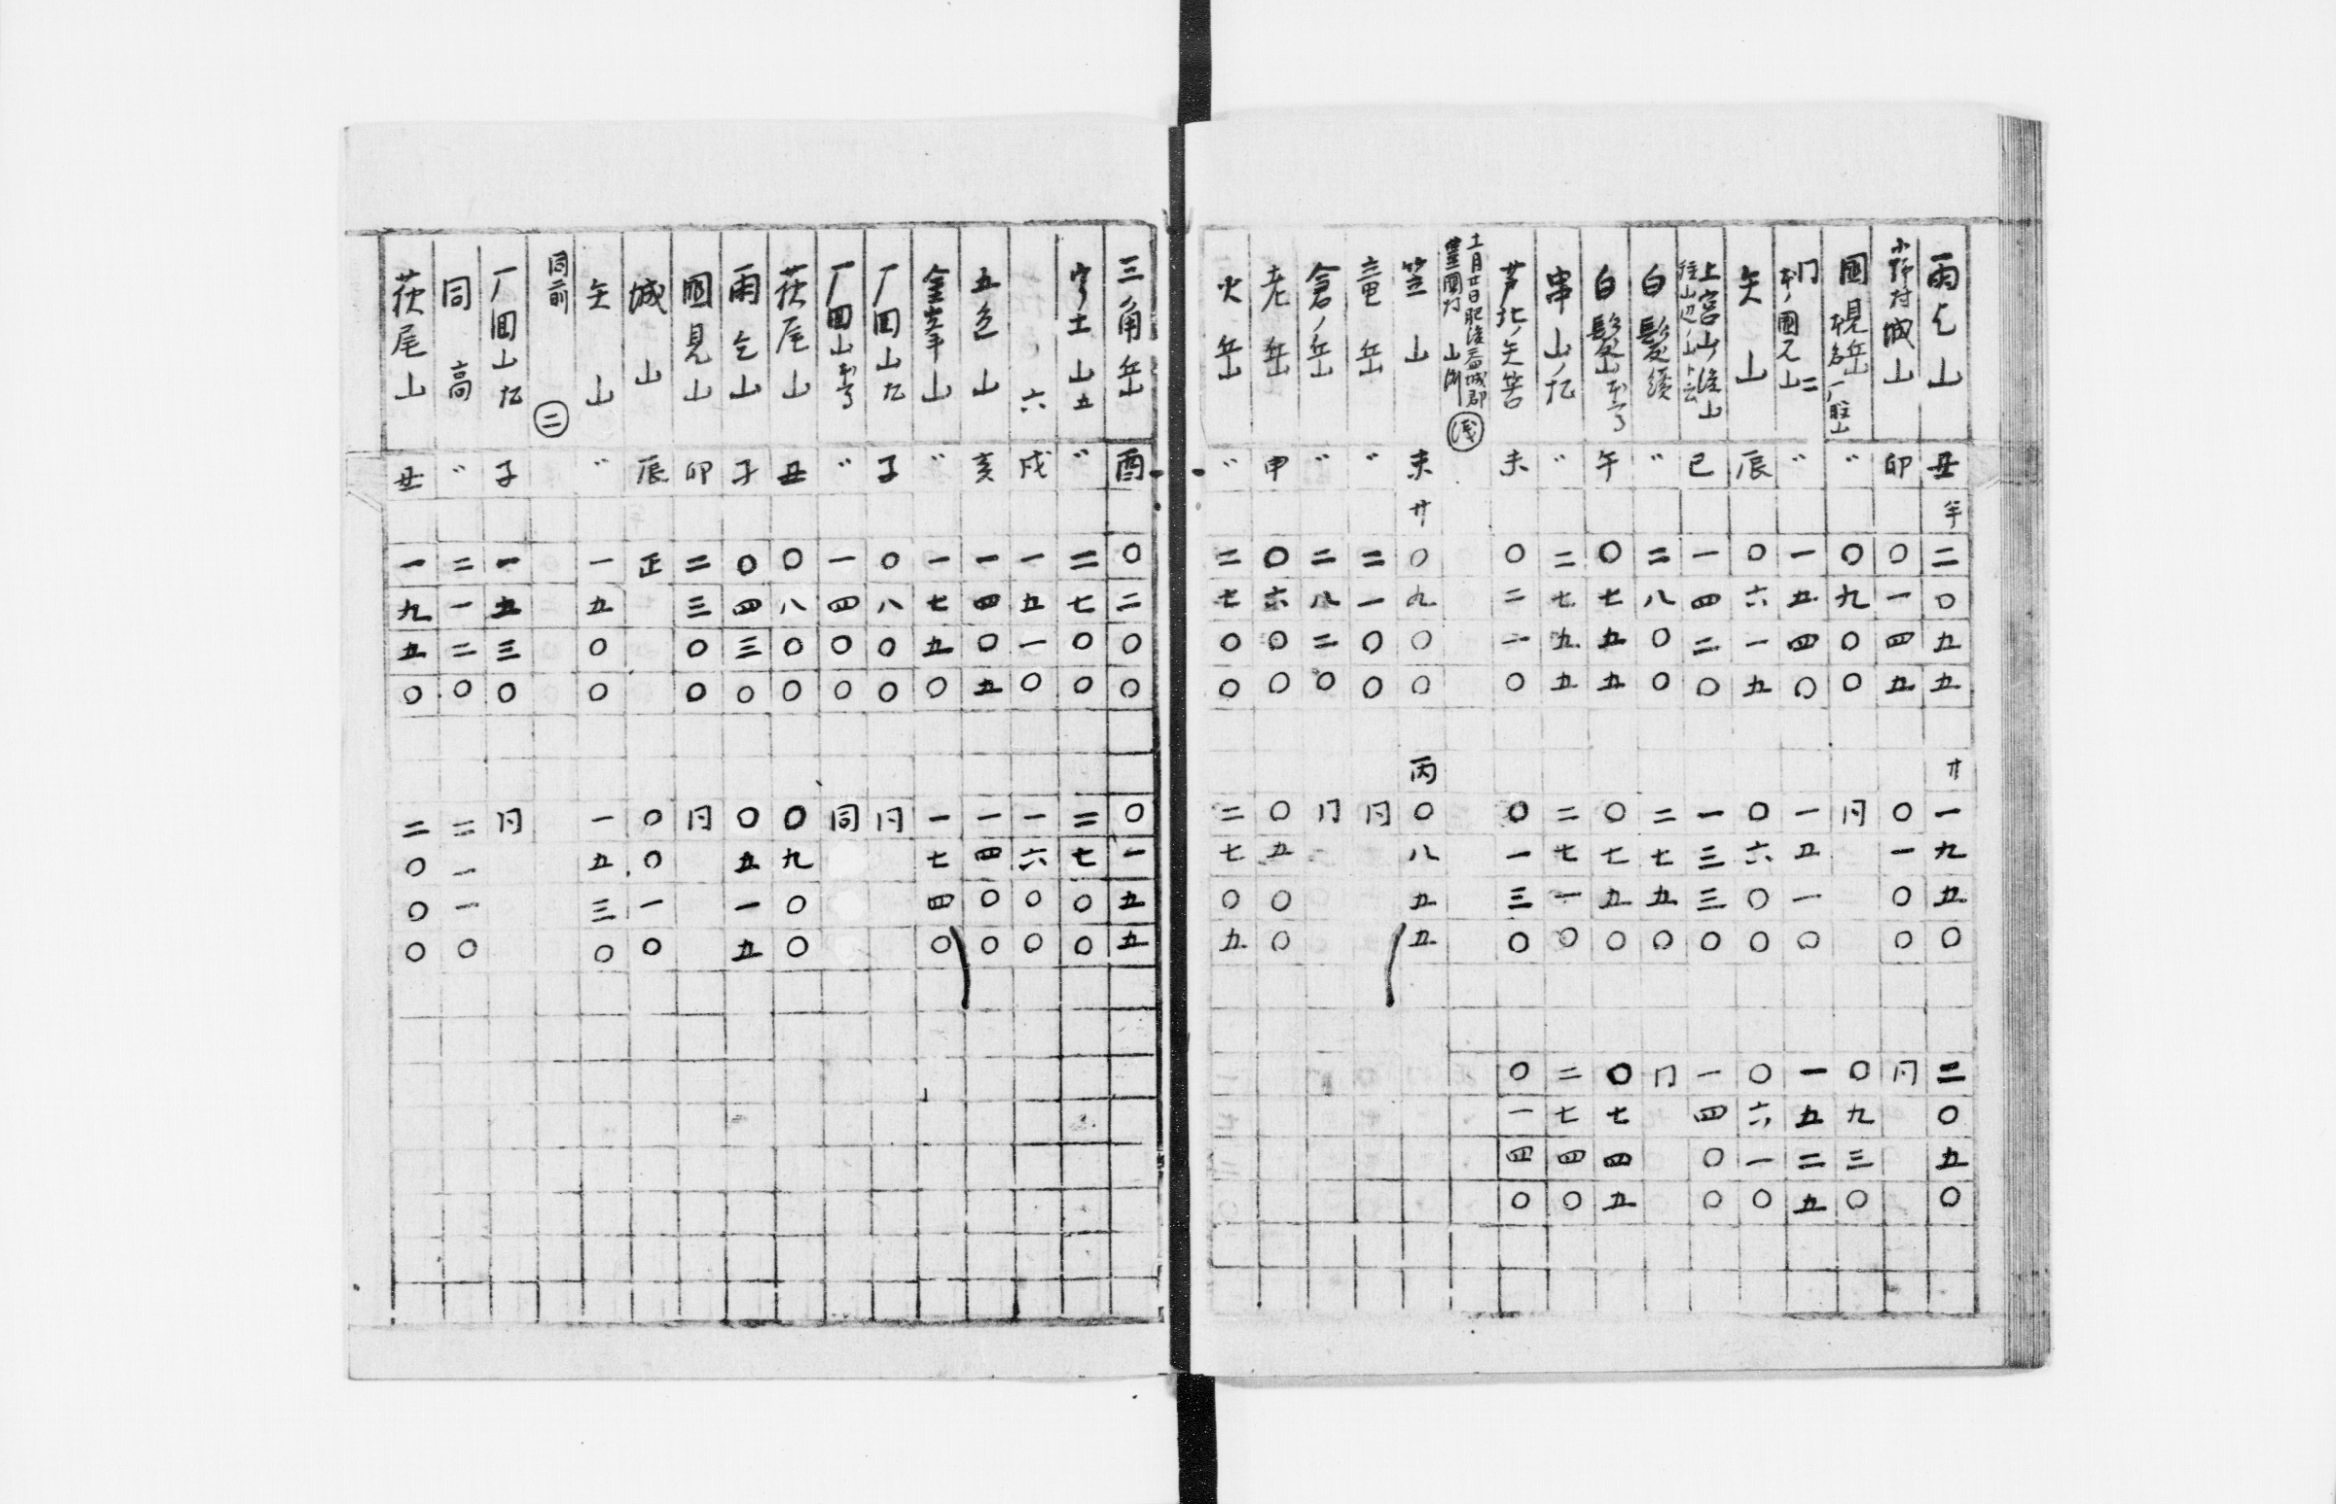 雨乞山 丑 半 二〇五五 廿 一九五〇 二〇五〇
小野村城山 卯 〇一四五 〇一〇〇 同
國見岳 〃 〇九〇〇 同 〇九三〇
〃 一五四〇 一五一〇 一五二五
矢山 辰 〇六一五 〇六〇〇 〇六一〇
上宮山 巳 一四二〇 一三三〇 一四〇〇
白髪 〃 二八〇〇 二七五〇 同
白髪山 午 〇七五五 〇七五〇 〇七四五
串山 〃 二七五五 二七一〇 二七四〇
芦北ノ矢筈 未 〇二一〇 〇一三〇 〇一四〇
笠山 未 廿 〇九〇〇 丙 〇八五五
竜岳 〃 二一〇〇 同
倉ノ岳 〃 二八二〇 同
老岳 申 〇六〇〇 〇五〇〇
火岳 〃 二七〇〇 二七〇五
三角岳 酉 〇二〇〇 〇一五五
宇土山 五 〃 二七〇〇 二七〇〇
〃 六 戌 一五一〇 一六〇〇
五色山 亥 一四〇五 一四〇〇
金峯山 〃 一七五〇 一七四〇
厂回山 子 〇八〇〇 同
厂回山 〃 一四〇〇 同
荻尾山 丑 〇八〇〇 〇九〇〇
雨乞山 子 〇四三〇 〇五一五
國見山 卯 二三〇〇 同
城山 辰 正 〇〇一〇
矢山 〃 一五〇〇 一五三〇
同前 二
厂回山 子 一五三〇 同
同 高 〃 二一二〇 二一一〇
荻尾山 丑 一九五〇 二〇〇〇